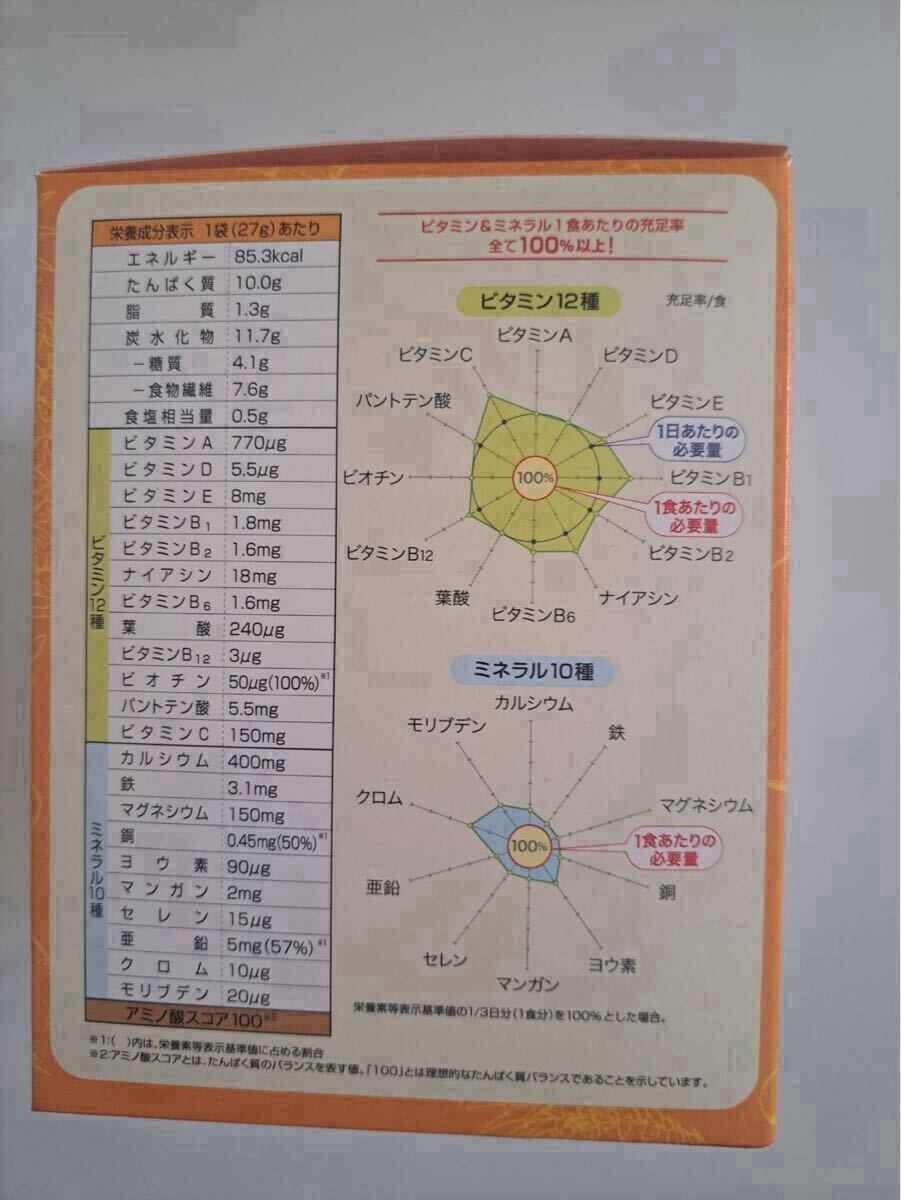 栄養成分表示 1袋(27g)あたり
エネルギー 85.3kcal
たんぱく質 10.0g
脂質 1.3g
炭水化物 11.7g
－糖質 4.1g
－食物繊維 7.6g
食塩相当量 0.5g
ビタミン12種
ビタミンA 770μg
ビタミンD 5.5μg
ビタミンE 8mg
ビタミンB1 1.8mg
ビタミンB2 1.6mg
ナイアシン 18mg
ビタミンB6 1.6mg
葉酸 240μg
ビタミンB12 3μg
ビオチン 50μg(100%)※1
パントテン酸 5.5mg
ビタミンC 150mg
ミネラル10種
カルシウム 400mg
鉄 3.1mg
マグネシウム 150mg
銅 0.45mg(50%)※1
ヨウ素 90μg
マンガン 2mg
セレン 15μg
亜鉛 5mg(57%)※1
クロム 10μg
モリブデン 20μg
アミノ酸スコア100※2
※1:( )内は、栄養素等表示基準値に占める割合
※2:アミノ酸スコアとは、たんぱく質のバランスを表す値。「100」とは理想的なたんぱく質バランスであることを示しています。
ビタミン&ミネラル1食あたりの充足率
全て100%以上!
ビタミン12種
充足率/食
ビタミンA
ビタミンD
ビタミンE
1日あたりの
必要量
ビタミンB1
1食あたりの
必要量
ビタミンB2
ナイアシン
ビタミンB6
葉酸
ビタミンB12
ビオチン
パントテン酸
ビタミンC
100%
ミネラル10種
カルシウム
鉄
マグネシウム
1食あたりの
必要量
銅
ヨウ素
マンガン
セレン
亜鉛
クロム
モリブデン
100%
栄養素等表示基準値の1/3日分(1食分)を100%とした場合。